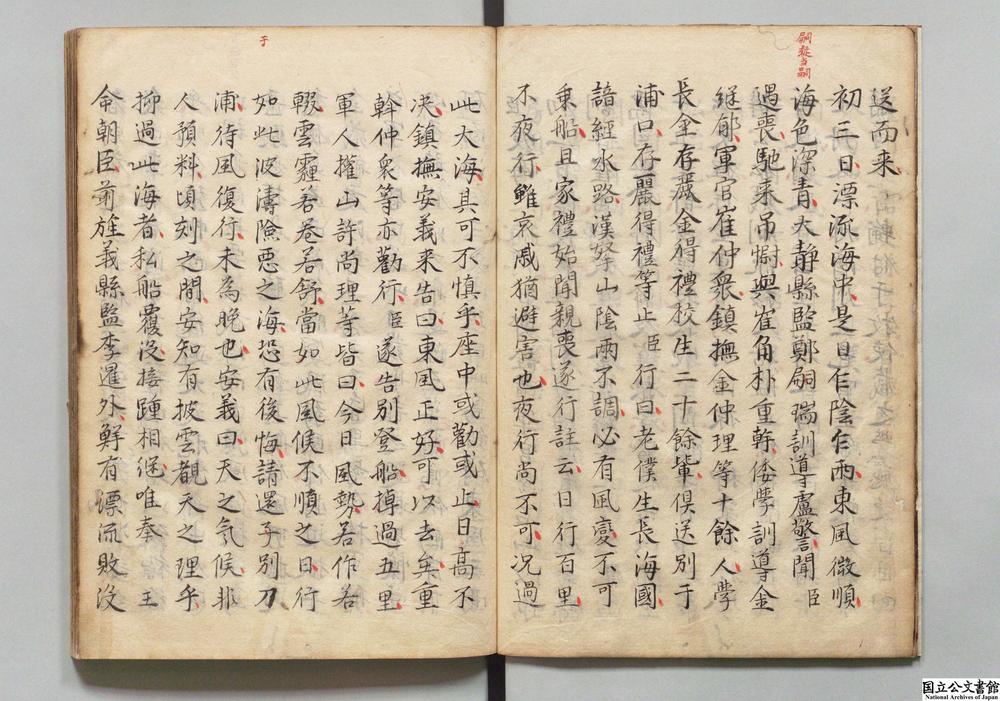 嗣疑当嗣
送而来
初三日漂流海中是日乍陰乍雨東風微順
海色深青大静縣監鄭嗣瑞訓導盧警聞臣
遇喪馳来吊慰與崔角朴重幹倭學訓導金
継郁軍官崔仲衆鎮撫金仲理等十餘人學
長金存麗金得禮校生二十餘輩俱送別于
浦口存麗得禮等止臣行曰老僕生長海國
諳經水路漢拏山陰雨不調必有風變不可
乗船且家禮始聞親喪遂行註云日行百里
不夜行雖哀戚猶避害也夜行尚不可况過
于
此大海其可不慎乎座中或勸或止日高不
决鎮撫安義来告曰東風正好可以去矣重
幹仲衆等亦勸行臣遂告別登船掉過五里
軍人權山許尚理等皆曰今日風勢若作若
輟雲霾若卷若舒當如此風候不順之日行
如此波濤險悪之海恐有後悔請還子別刀
浦待風復行未為晩也安義曰天之気候非
人預料頃刻之間安知有披雲覩天之理乎
抑過此海者私船覆没接踵相繼唯奉王
命朝臣前旌義縣監李暹外鮮有漂流敗没
国立公文書館
National Archives of Japan